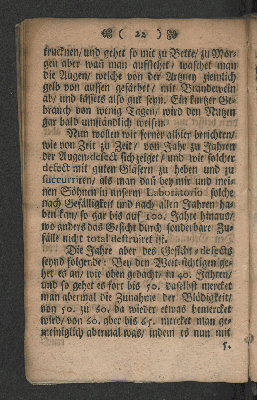 ( 22 )
trucknen/ und gehet so mit zu Bette/ zu Mor-
gen aber wan man auffstehet/ waschet man
die Augen/ welche von der Artzney ziemlich
gelb von aussen gefärbet/ mit Brandewein
ab/ und lässets also gut seyn. Ein kurtzer Ge-
brauch von wenig Tagen/ wird den Nutzen
gar bald umständlich weisen.
Nun wollen wir ferner allhier berichten/
wie von Zeit zu Zeit/ von Jahr zu Jahren
der Augen-defect sich zeiget/ und wir solcher
defect mit guten Gläsern zu heben und zu
succurriren/ als man das bey mir und mei-
nen Söhnen in unserm Laboratorio solche
nach Gefälligkeit und nach allen Jahren ha-
ben kan/ so gar bis auf 100. Jahre hinaus/
wo anders das Gesicht durch sonderbare Zu-
fälle nicht total destruiret ist.
Die Jahre aber des Gesicht-defects
seynd folgende: Bey den Weit-sichtigen ge-
het es an/ wie oben gedacht/ in 40. Jahren/
und so gehet es fort bis 50. daselbst mercket
man abermal die Zunahme der Blödigkeit/
von 50. zu 60. da wieder etwas bemercket
wird/ von 60. aber bis 65. mercket man ge-
meiniglich abermal was/ indem es nun mit
5.